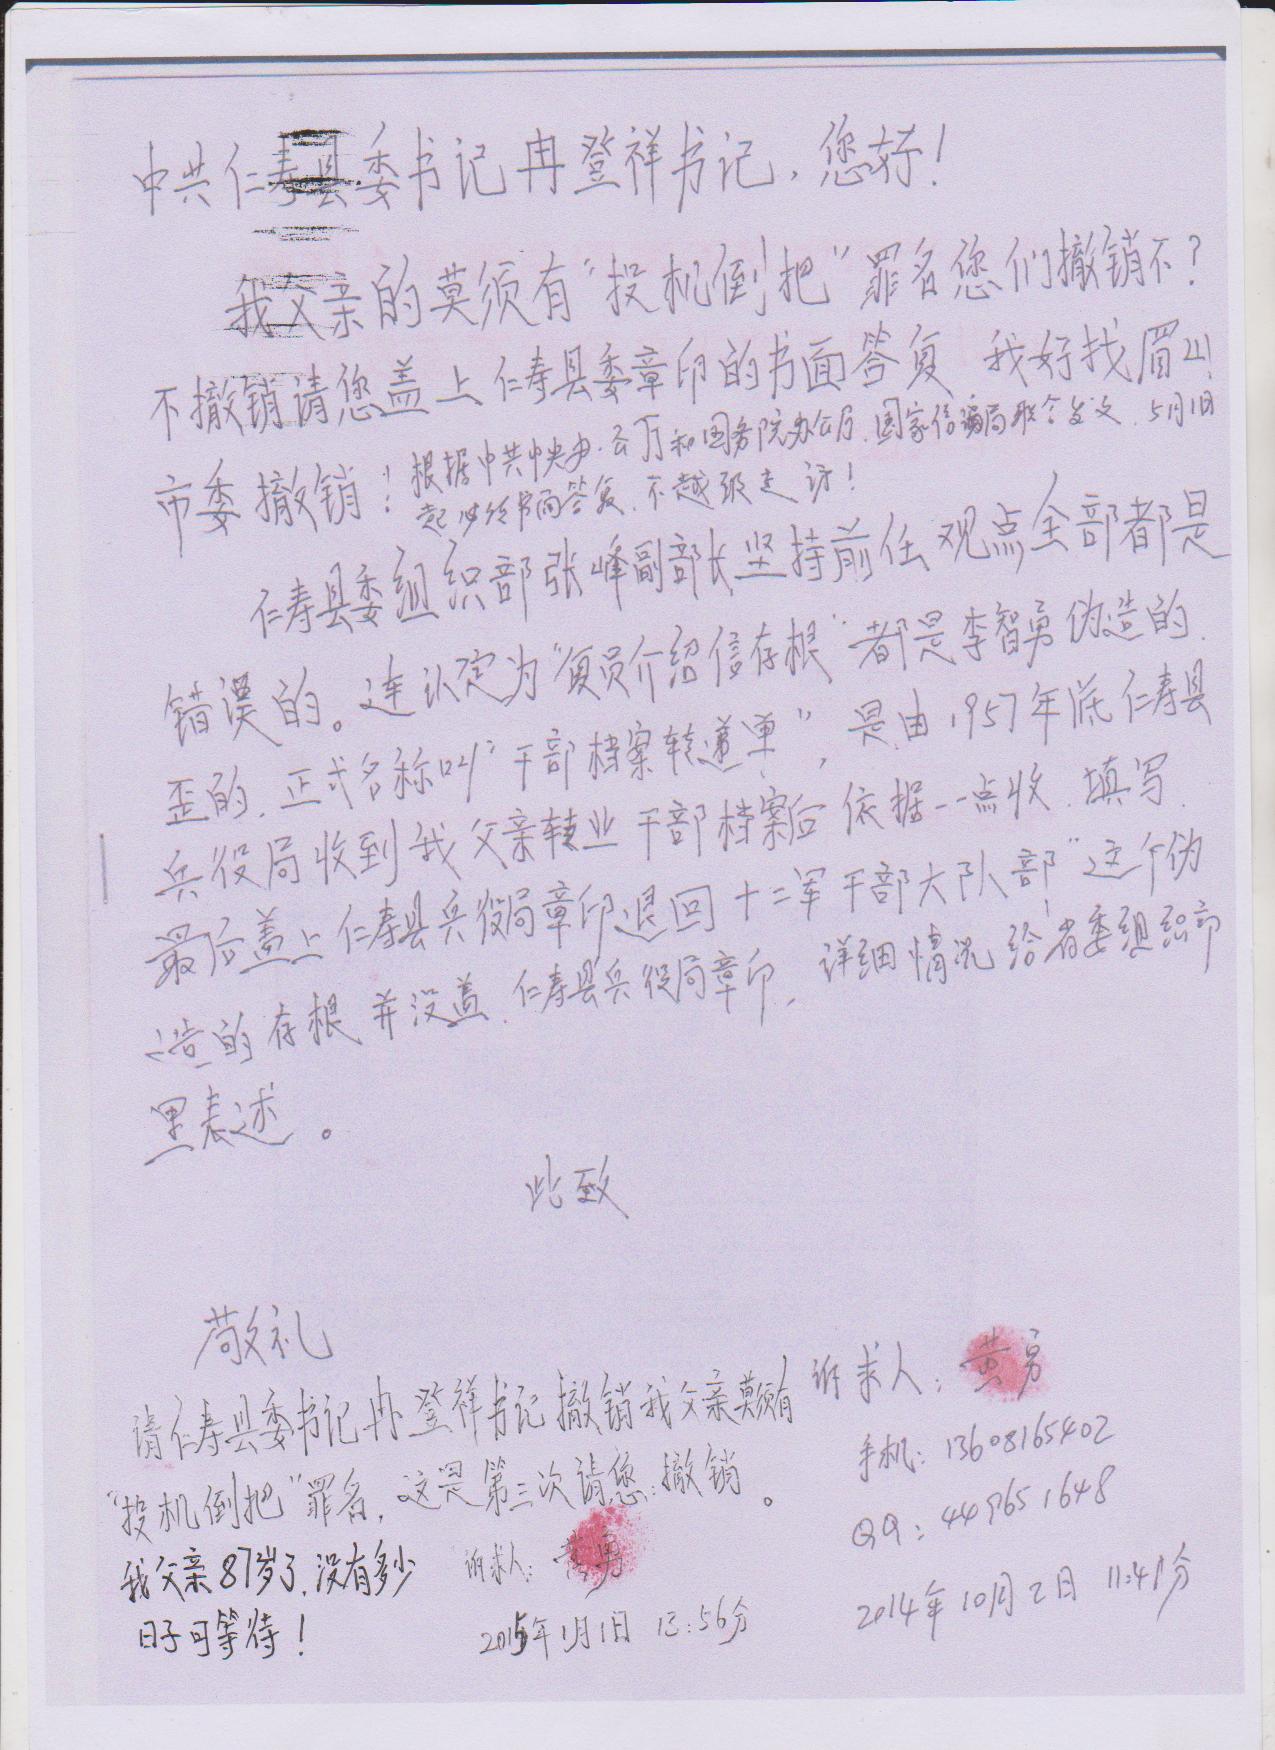 中共仁寿县委书记冉登祥书记，您好！
我父亲的莫须有“投机倒把”罪名您们撤销不？
不撤销请您盖上仁寿县委章印的书面答复 我好找眉山
市委撤销！
根据中共中央办公厅和国务院办公厅、国家信访局联合发文，5月1日
起必须书面答复，不越级走访！
仁寿县委组织部张峰副部长坚持前任观点全部都是
错误的。连认定为“复员介绍信存根”都是李智勇伪造的、
歪的，正式名称叫“干部档案转递单”，是由1957年底仁寿县
兵役局收到我父亲转业干部档案后依据一一点收、填写、
最后盖上仁寿县兵役局章印退回十二军干部大队部“这个伪
造的存根并没盖、仁寿县兵役局章印，详细情况给省委组织部
里表述。
此致
敬礼
诉求人：黄勇
手机：13608165402
QQ：449651648
2014年10月2日 11:41分
请仁寿县委书记冉登祥书记撤销我父亲莫须有
“投机倒把”罪名，这是第三次请您撤销。
我父亲87岁了，没有多少
日子可等待！
诉求人：黄勇
2015年1月1日 13:56分